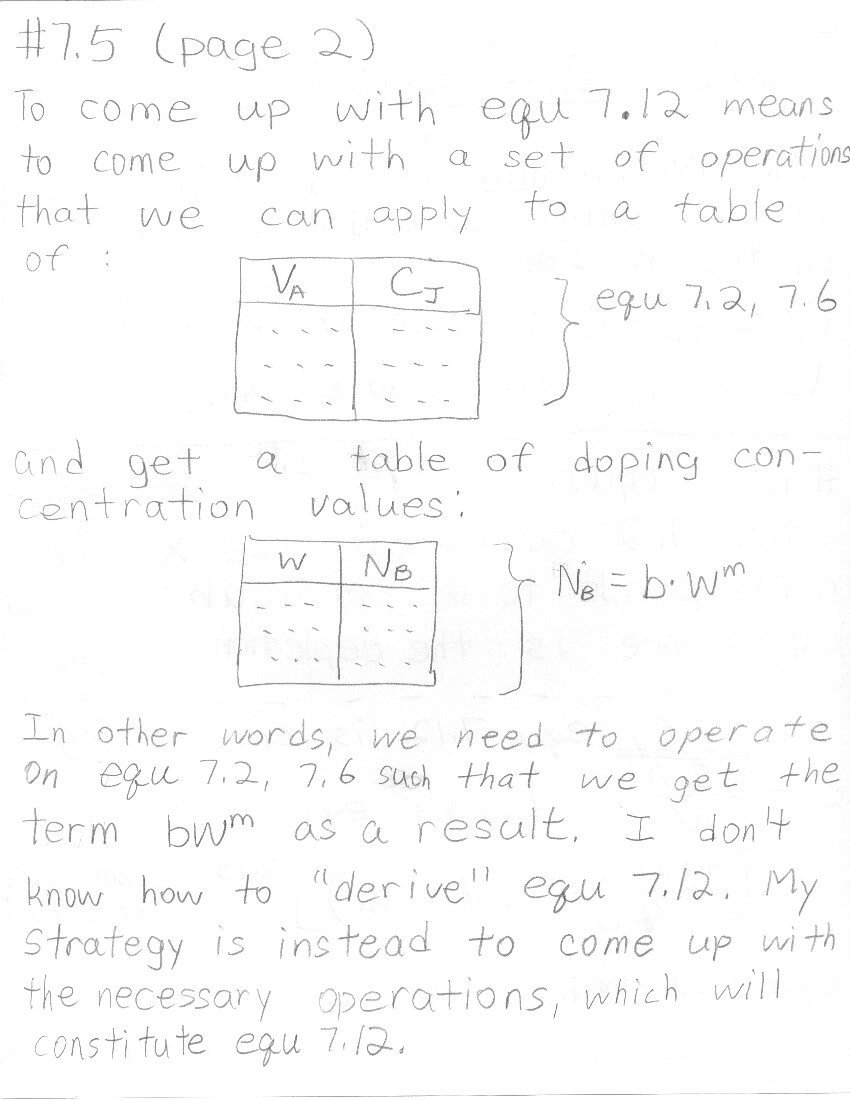 #7.5 (page 2)
To come up with equ 7.12 means
to come up with a set of operations
that we can apply to a table
of :
V_A C_J
equ 7.2, 7.6
and get a table of doping con-
centration values:
W N_B
N_B = b·W^m
In other words, we need to operate
on equ 7.2, 7.6 such that we get the
term bW^m as a result. I don't
know how to "derive" equ 7.12. My
strategy is instead to come up with
the necessary operations, which will
constitute equ 7.12.